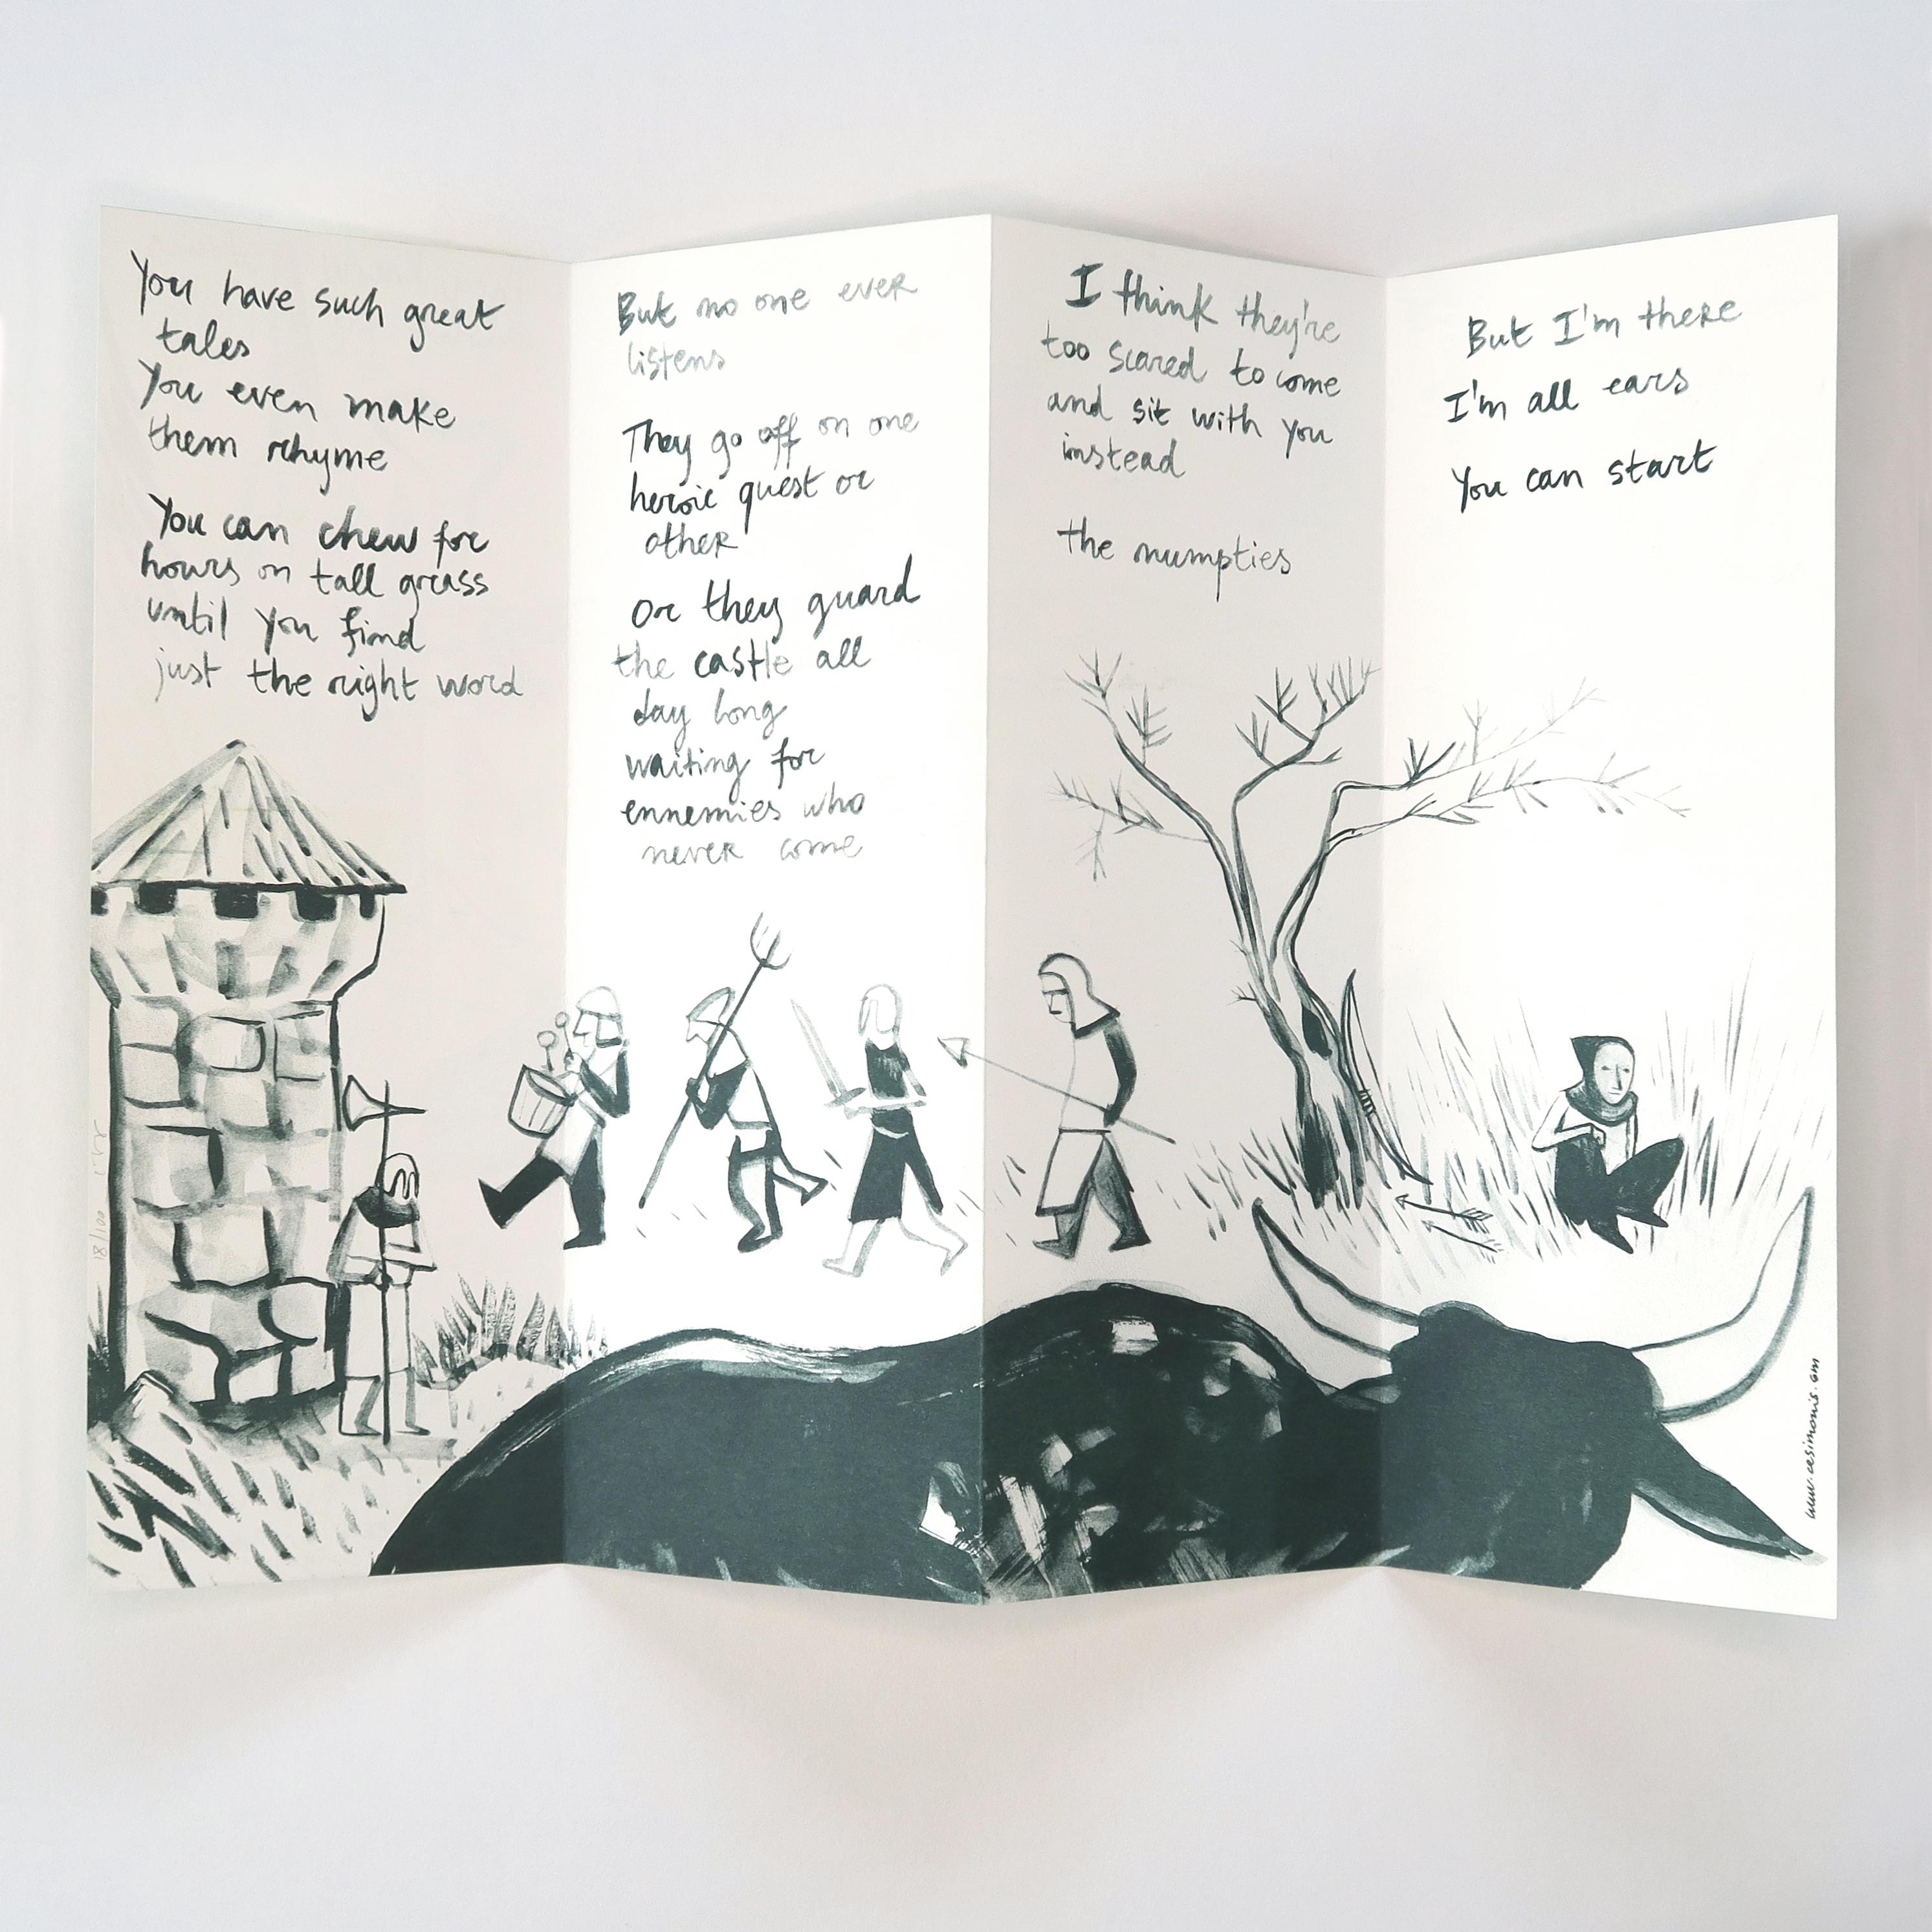 You have such great
tales
You even make
them rhyme
You can chew for
hours on tall grass
until you find
just the right word
But no one ever
listens
They go off on one
heroic quest or
other
Or they guard
the castle all
day long
waiting for
ennemies who
never come
I think they're
too scared to come
and sit with you
instead
the numpties
But I'm there
I'm all ears
You can start
18/100
www.cesimonis.com